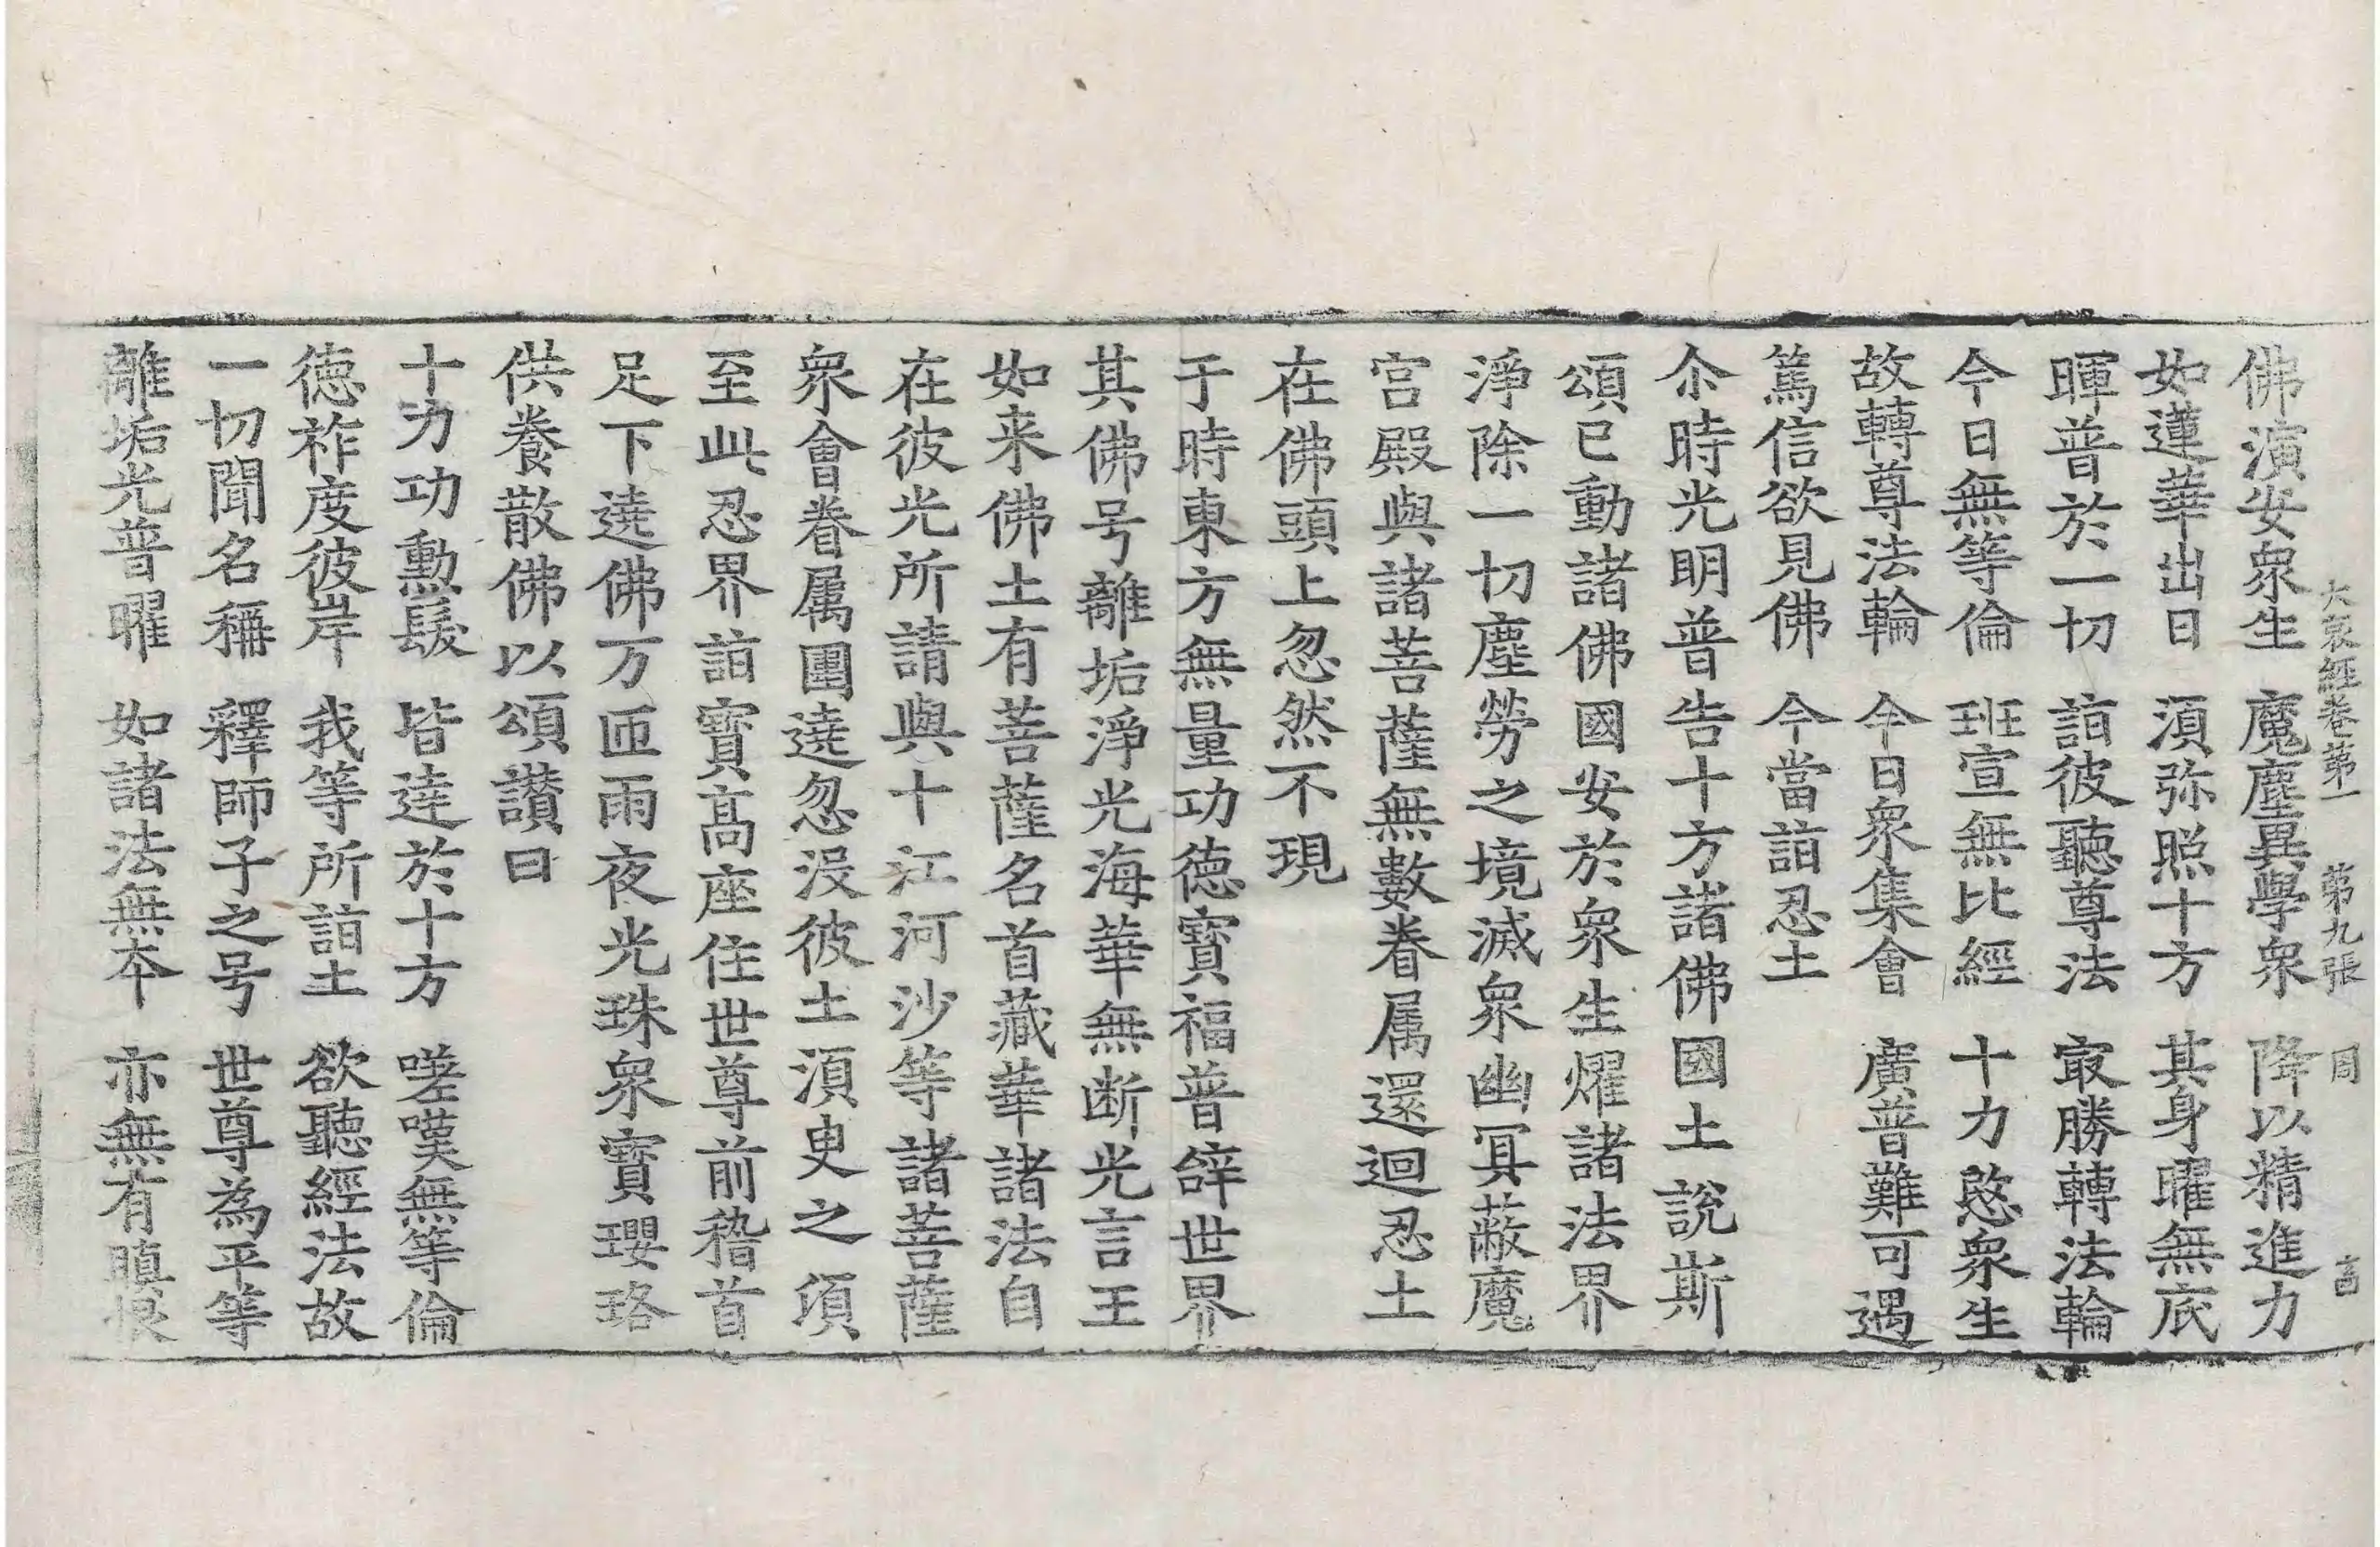 大哀經卷第一　第九張　周　言
佛演安衆生　魔塵異學衆　降以精進力
如蓮華出日　湏弥照十方　其身曜無底
暉普於一切　詣彼聽尊法　㝡勝轉法輪
今日無等倫　班宣無比經　十力愍衆生
故轉尊法輪　今日衆集會　廣普難可遇
篤信欲見佛　今當詣忍土
尒時光明普告十方諸佛國土說斯
頌已動諸佛國安於衆生燿諸法界
淨除一切塵勞之境滅衆幽冥蔽魔
宮殿與諸菩薩無數眷属還迴忍土
在佛頭上忽然不現
于時東方無量功德寶福普辝世界
其佛号離垢淨光海華無断光言王
如来佛土有菩薩名首藏華諸法自
在彼光所請與十江河沙等諸菩薩
衆會眷属圍遶忽没彼土湏臾之頃
至此忍界詣寶高座住世尊前稽首
足下遶佛万匝雨夜光珠衆寶瓔珞
供養散佛以頌讃曰
十力功勳髮　皆達於十方　嗟嘆無等倫
德祚度彼岸　我等所詣土　欲聽經法故
一切聞名稱　釋師子之号　世尊為平等
離垢光普曜　如諸法無本　亦無有瞋恨